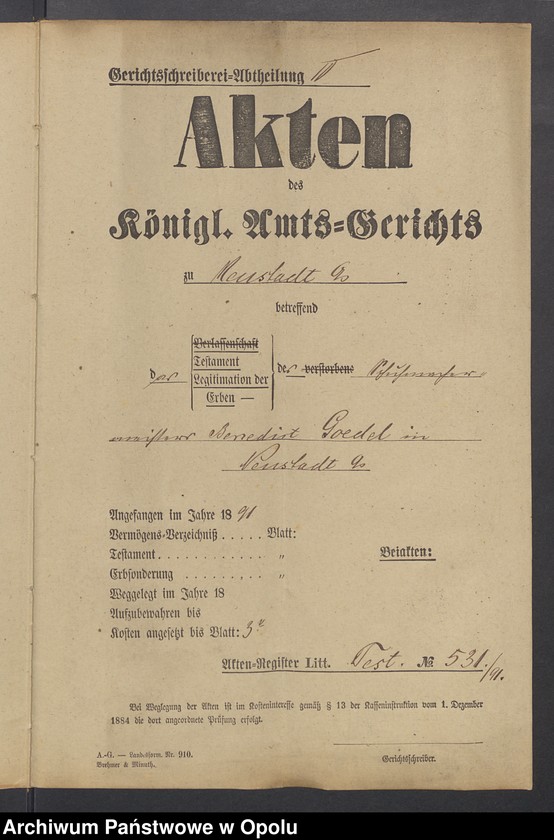 Gerichtsschreiberei-Abtheilung IV
Akten
des
Königl. Amts=Gerichts
zu Neustadt O/S
betreffend
Verlassenschaft
Testament
das Legitimation der des verstorbene Schuhmacher=
Erben —
meisters Benedict Goedel in
Neustadt O/S
Angefangen im Jahre 1891
Vermögens-Verzeichniß . . . . . Blatt:
Testament . . . . . . . . . . . . „
Beiakten:
Erbsonderung . . . . . . . . . „
Weggelegt im Jahre 18
Aufzubewahren bis
Kosten angesetzt bis Blatt: 3
Akten=Register Litt. Test. № 531./91.
Bei Weglegung der Akten ist im Kosteninteresse gemäß § 13 der Kasseninstruktion vom 1. Dezember
1884 die dort angeordnete Prüfung erfolgt.
A.-G. — Landesform. Nr. 910.
Gerichtsschreiber.
Archiwum Państwowe w Opolu